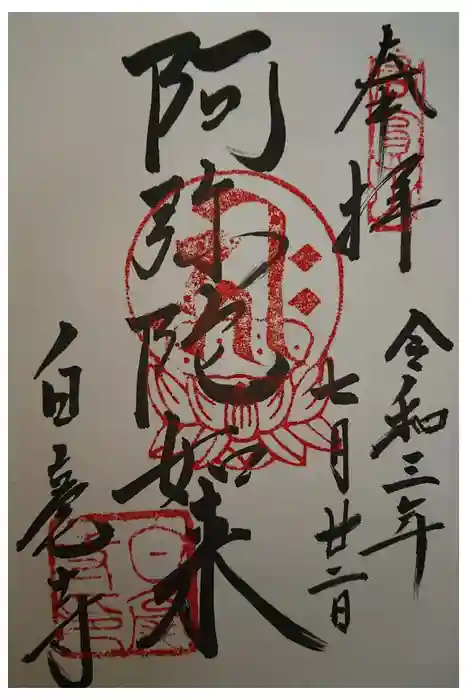 奉拝
令和三年
七月廿二日
阿弥陀如来
白毫寺